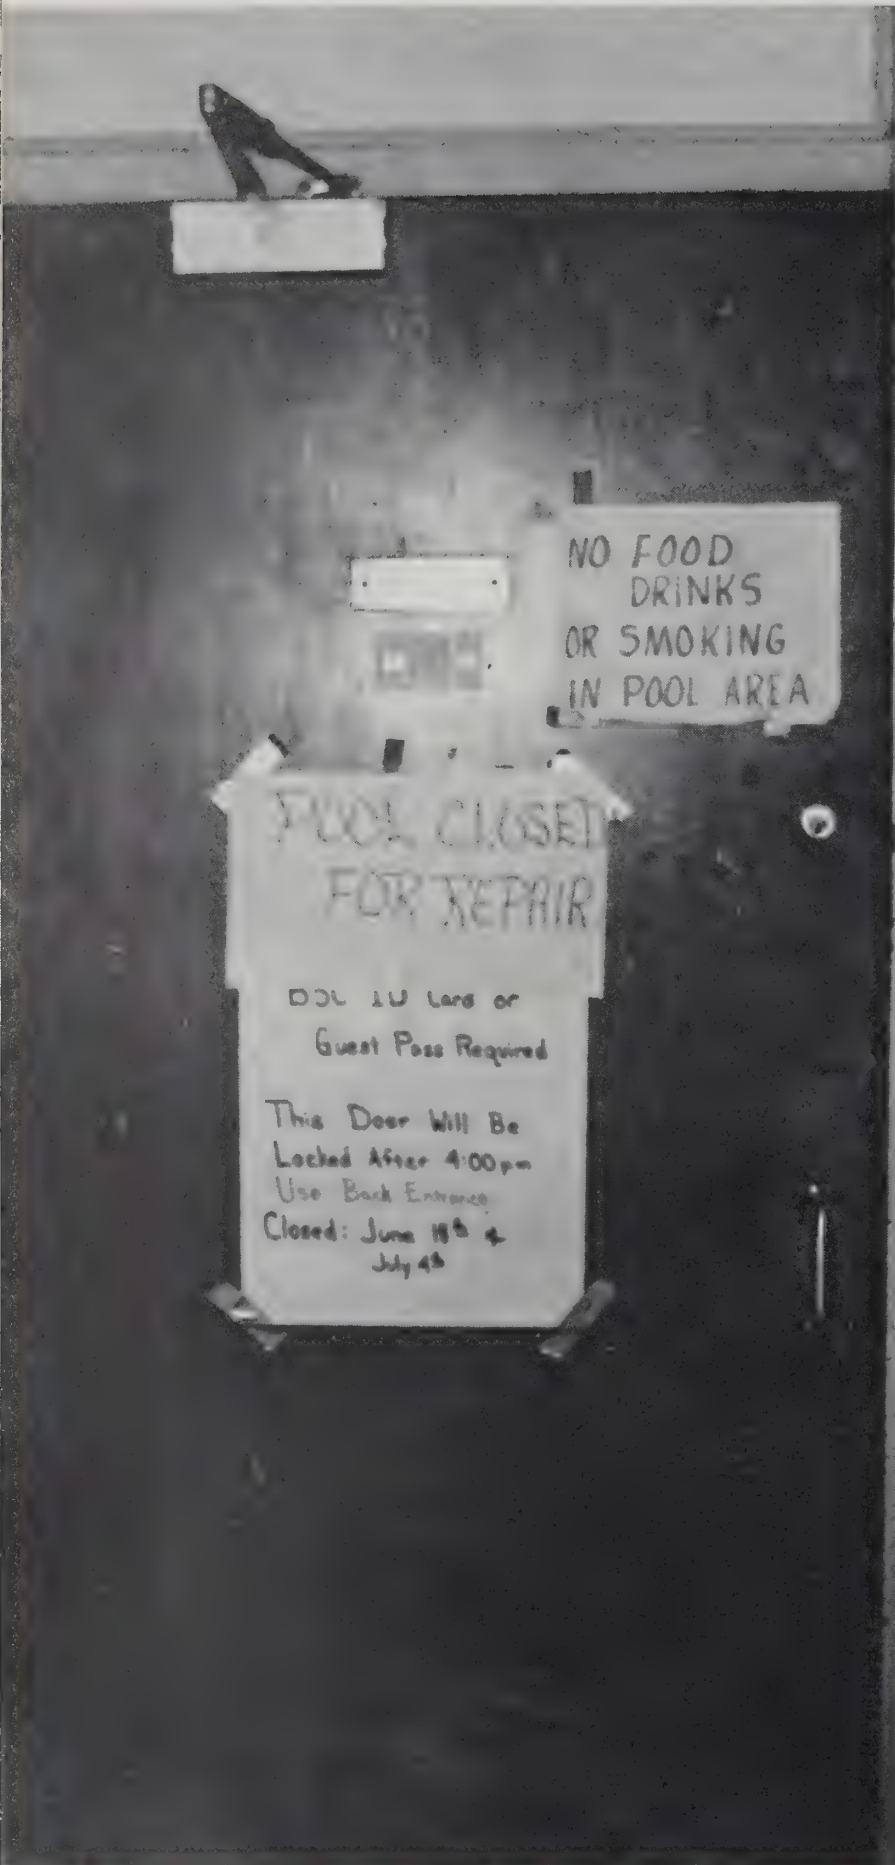 NO FOOD
DRINKS
OR SMOKING
IN POOL AREA
POOL CLOSED
FOR REPAIR
ID Card or
Guest Pass Required
This Door Will Be
Locked After 4:00pm
Use Back Entrance
Closed: June &
July 4th